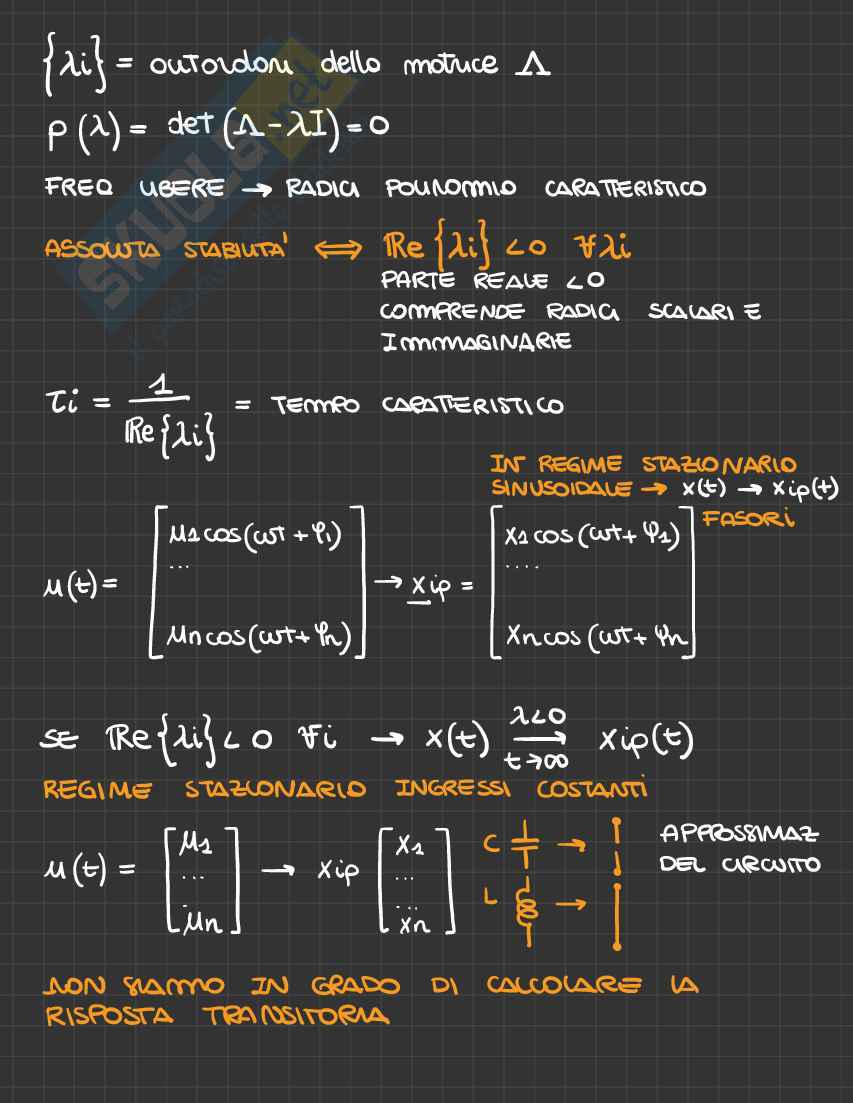 {λi} = autovalori della matrice Λ
p(λ) = det(Λ-λI)=0
FREQ LIBERE → RADICI POLINOMIO CARATTERISTICO
ASSOLUTA STABILITA' ⟺ Re{λi} <0 ∀λi
PARTE REALE <0
COMPRENDE RADICI SCALARI E
IMMAGINARIE
τi = 1/Re{λi} = TEMPO CARATTERISTICO
IN REGIME STAZIONARIO
SINUSOIDALE → x(t) → xip(t)
FASORI
μ(t)= [μ1cos(ωt+φ1) ... μncos(ωt+φn)] → xip = [x1cos(ωt+ψ1) .... xncos(ωt+ψn)]
SE Re{λi}<0 ∀i → x(t) λ<0 → t→∞ xip(t)
REGIME STAZIONARIO INGRESSI COSTANTI
μ(t) = [μ1 ... μn] → xip [x1 ... ... xn]
C →
L →
APPROSSIMAZ
DEL CIRCUITO
NON SIAMO IN GRADO DI CALCOLARE LA
RISPOSTA TRANSITORIA
SKUOLA.net